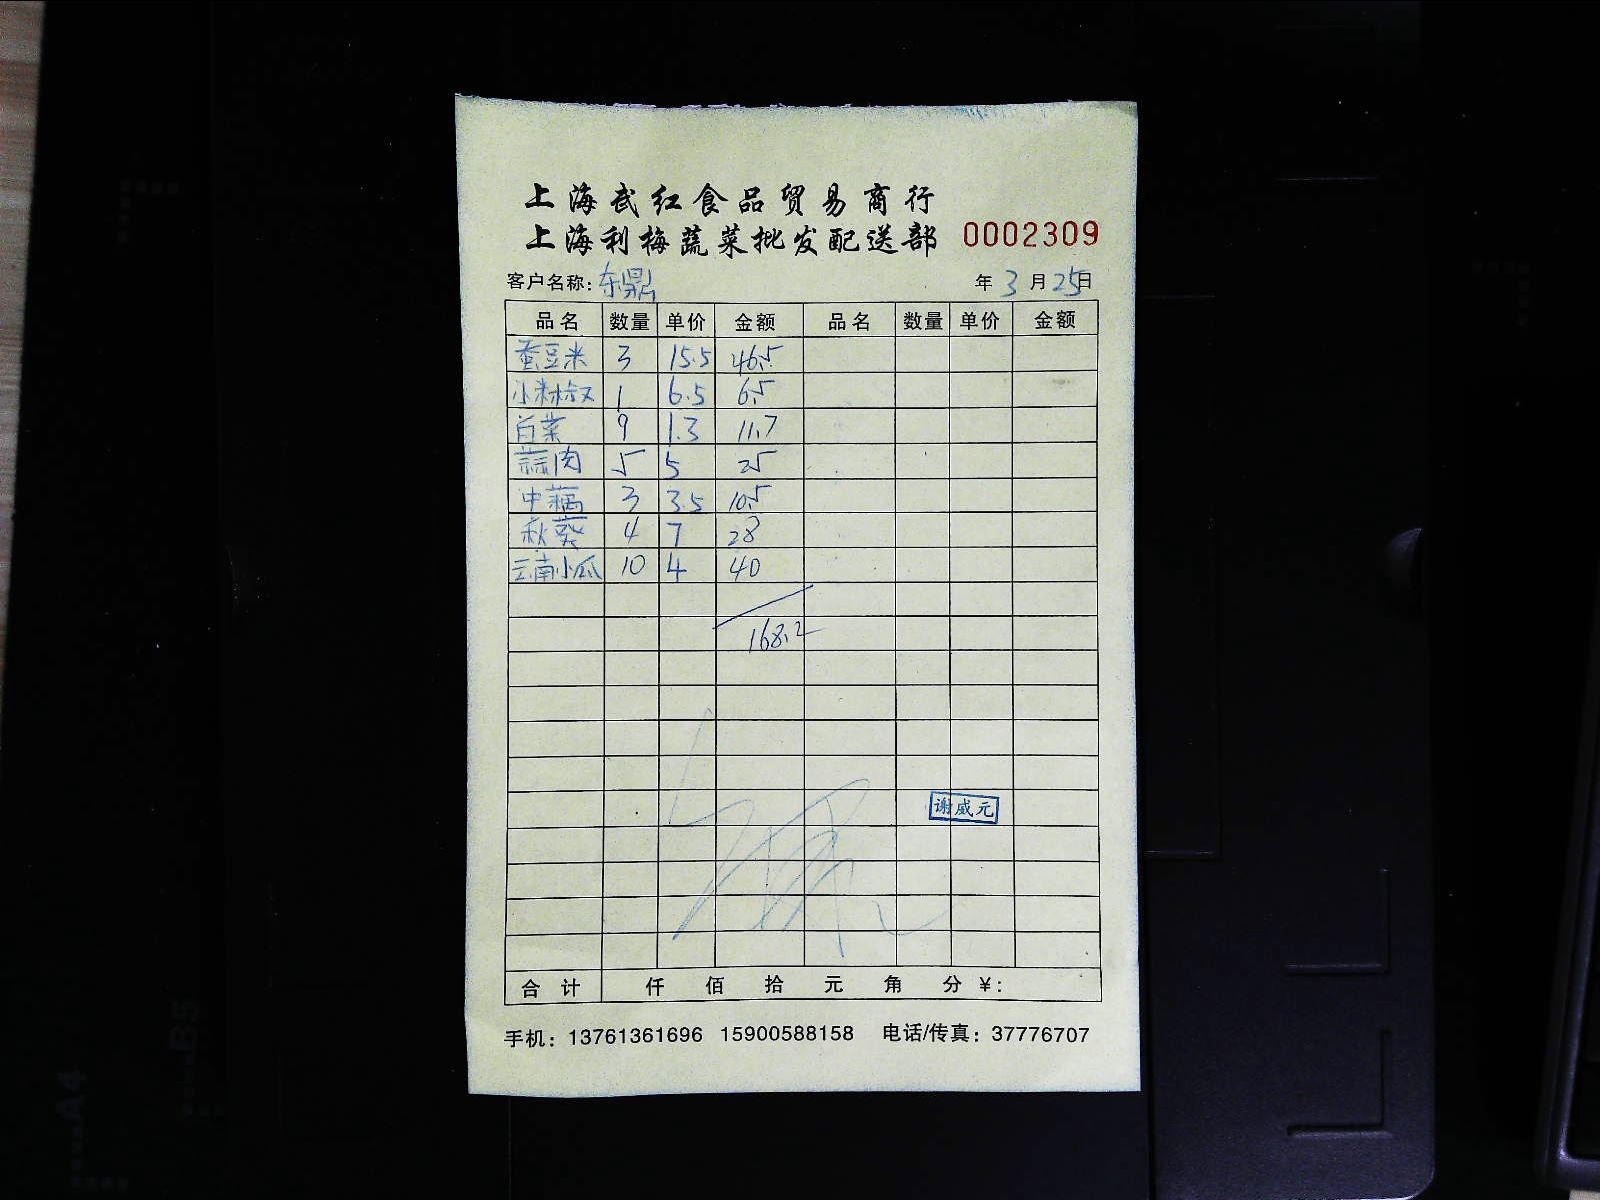 上海武红食品贸易商行
上海利梅蔬菜批发配送部 0002309
客户名称: 东鼎 年 3 月 25 日
品名 数量 单价 金额 品名 数量 单价 金额
蚕豆米 3 15.5 46.5
小米椒 1 6.5 6.5
白菜 9 1.3 11.7
蒜肉 5 5 25
中藕 3 3.5 10.5
秋葵 4 7 28
云南小瓜 10 4 40
168.2
谢威元
合计 仟 佰 拾 元 角 分 ¥:
手机: 13761361696 15900588158 电话/传真: 37776707
A4
B5